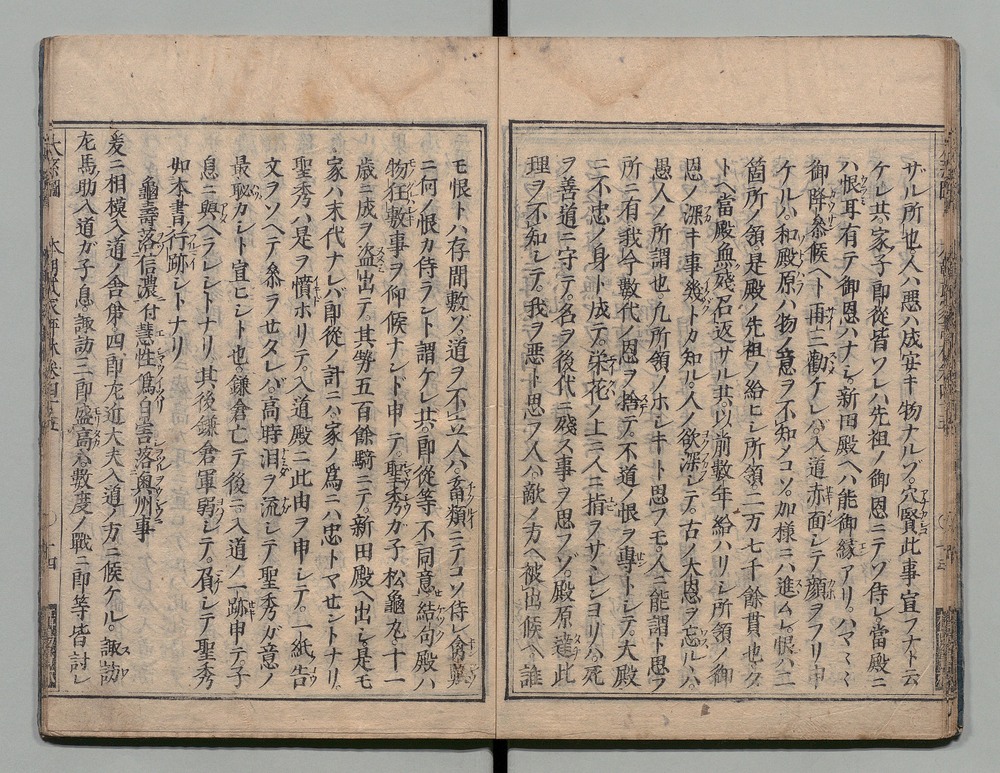 サル所也人ハ悪ハ成安キ物ナルブ穴賢此事宣フナト云
ケレ共家子郎從皆ソレハ先祖ノ御恩ニテソ侍レ當殿ニ
ハ恨耳有テ御恩ハナシ新田殿ヘハ能御縁アリハマミミ
御降参候ヘト再三勸ケレハ入道赤面シテ顔ヲフリ申
ケルハ和殿原ハ物ノ意ヲ不知メコソ加様ニハ進ムレ恨ハ二
箇所ノ領是殿ノ先祖ノ給ヒシ所領二万七千餘貫也タ
トヘ當殿無残召返サル共以前數年給ハリシ所領ノ御
恩ノ深キ事幾トカ知ル人ノ欲深シテ古ノ大恩ヲ忘ルハ
愚人ノ所謂也凢所領ノホシキト思フモ人ニ能謂ト思フ
所ニ有我今數代ノ恩ヲ捨テ不道ノ恨ヲ專トシテ大殿
ニ不忠ノ身ト成テ栄花ノ上ニ人ニ指ヲサヽレンヨリハ死
ヲ善道ニ守テ名ヲ後代ニ残ス事ヲ思フゾ殿原達此
理ヲ不知シテ我ヲ悪ト思フ人ハ敵ノ方ヘ被出候ヘ誰
モ恨トハ存間敷ソ道ヲ不立人ハ畜類ニテコソ侍レ會
ニ何ノ恨カ侍ラント謂ケレ共郎從等不同意結句殿ハ
物狂敷事ヲ仰候ナンド申テ聖秀ガ子松龜丸十一
歳ニ成ヲ盗出テ其勢五百餘騎ニテ新田殿ヘ出シ是モ
家ハ末代ナレバ郎從ノ計ニハ家ノ爲ニハ忠トマせントナリ
聖秀ハ是ヲ憤ホリテ入道殿ニ此由ヲ申シテ一紙告
文ヲソヘテ参ヲせタレバ高時泪ヲ流シテ聖秀ガ意ノ
最恥カシト宣ヒシト也鎌倉亡テ後ニ入道ノ一跡申テ子
息ニ與ヘラレシトナリ其後鎌倉軍弱シテ負シテ聖秀
如本書行跡シトナリ
龜壽落信濃付慧性爲自害落奥州事
爰ニ相模入道ノ舎第四郎左近大夫入道ノ方ニ候ケル諏訪
左馬助入道ガ子息諏訪三郎盛高ハ數度ノ戰ニ郎等皆討レ